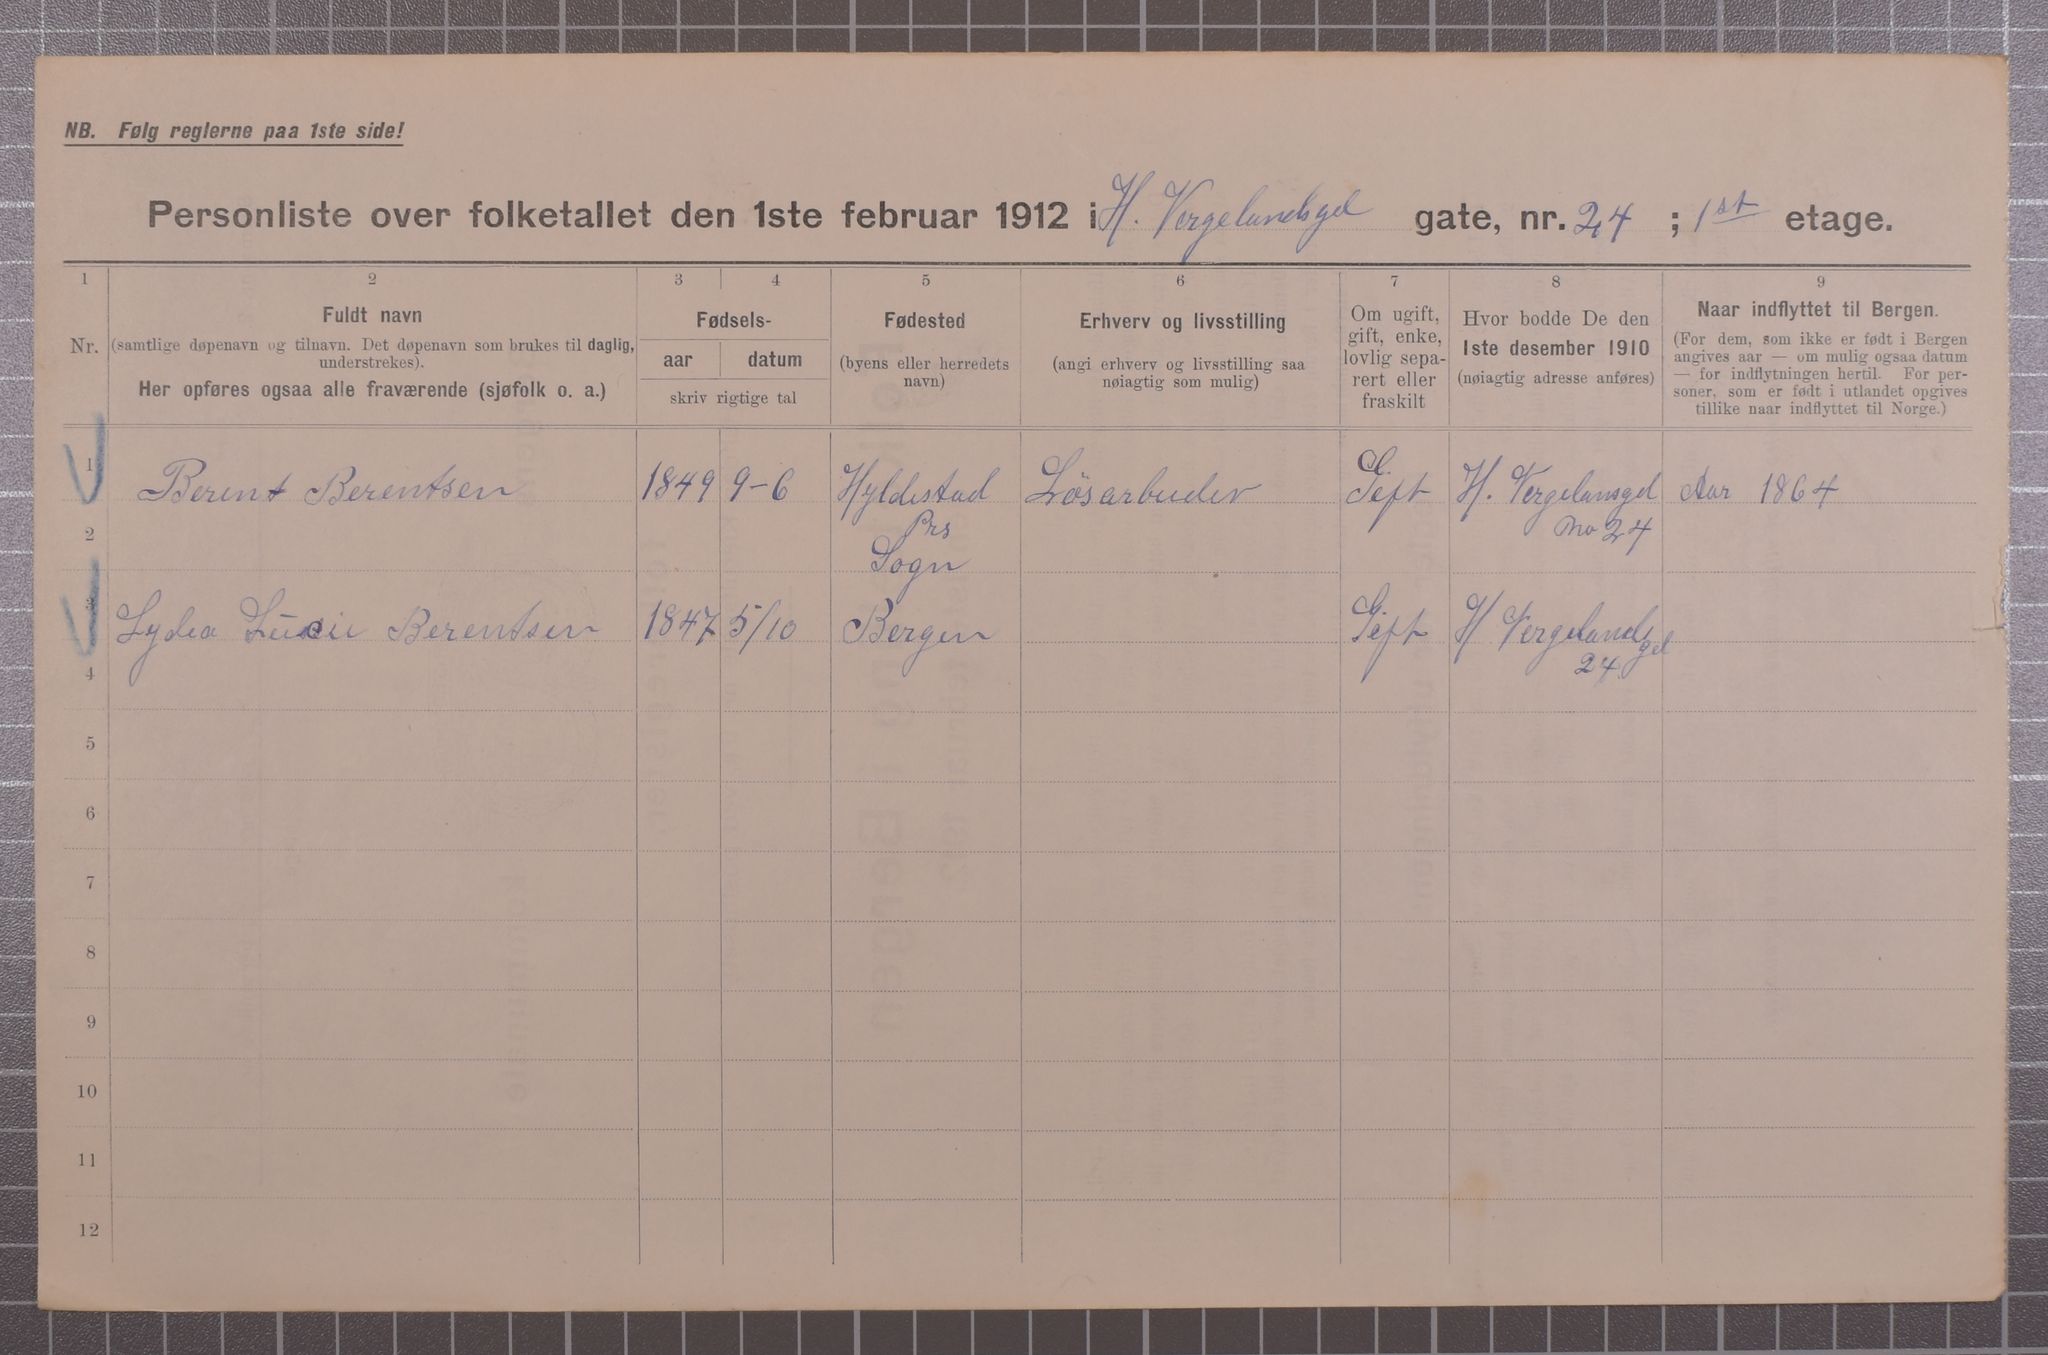 NB. Følg reglerne paa 1ste side!
Personliste over folketallet den 1ste februar 1912 i H. Vergelandsgd gate, nr. 24 ; 1st etage.
1 2 3 4 5 6 7 8 9
Nr.
Fuldt navn
(samtlige døpenavn og tilnavn. Det døpenavn som brukes til daglig,
understrekes).
Her opføres ogsaa alle fraværende (sjøfolk o. a.)
Fødsels-
aar datum
skriv rigtige tal
Fødested
(byens eller herredets
navn)
Erhverv og livsstilling
(angi erhverv og livsstilling saa
nøiagtig som mulig)
Om ugift,
gift, enke,
lovlig sepa-
rert eller
fraskilt
Hvor bodde De den
1ste desember 1910
(nøiagtig adresse anføres)
Naar indflyttet til Bergen.
(For dem, som ikke er født i Bergen
angives aar — om mulig ogsaa datum
— for indflytningen hertil. For per-
soner, som er født i utlandet opgives
tillike naar indflyttet til Norge.)
1 Berent Berentsen 1849 9-6 Hyldestad Løsarbeider Gift H. Vergelansgd Aar 1864
Prs no 24
2
Sogn
3 Lydia Lucie Berentsen 1847 5/10 Bergen Gift H Vergelandsgd
24
4
5
6
7
8
9
10
11
12